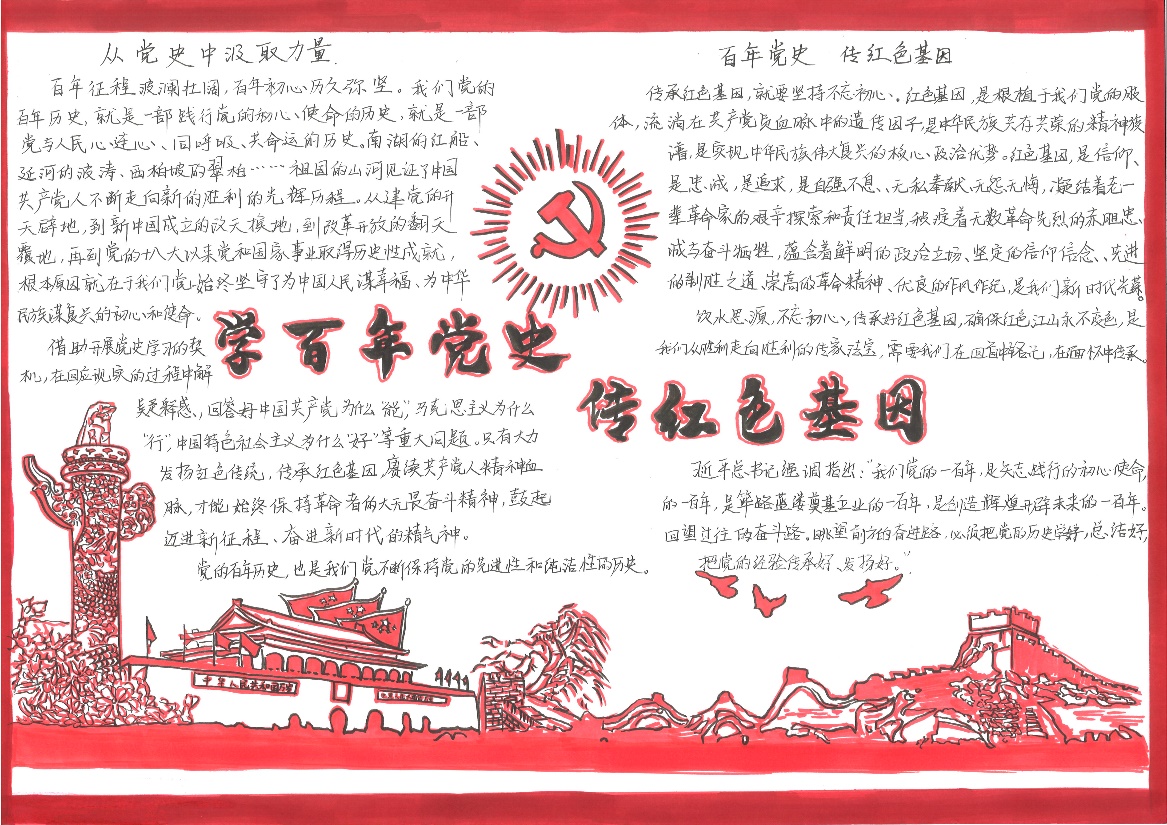 从党史中汲取力量
百年征程波澜壮阔，百年初心历久弥坚。我们党的
百年历史，就是一部践行党的初心、使命的历史，就是一部
党与人民心连心、同呼吸、共命运的历史。南湖的红船、
延河的波涛、西柏坡的翠柏……祖国的山河见证了中国
共产党人不断走向新的胜利的光辉历程。从建党的开
天辟地，到新中国成立的改天换地，到改革开放的翻天
覆地，再到党的十八大以来党和国家事业取得历史性成就，
根本原因就在于我们党始终坚守了为中国人民谋幸福、为中华
民族谋复兴的初心和使命。
借助开展党史学习的契
机，在回应现实的过程中解
疑释惑，回答好中国共产党为什么“能”，马克思主义为什么
“行”，中国特色社会主义为什么“好”等重大问题。只有大力
发扬红色传统，传承红色基因，赓续共产党人精神血
脉，才能始终保持革命者的大无畏奋斗精神，鼓起
迈进新征程、奋进新时代的精气神。
党的百年历史，也是我们党不断保持党的先进性和纯洁性的历史。
学百年党史
传红色基因
百年党史 传红色基因
传承红色基因，就要坚持不忘初心。红色基因，是根植于我们党的肌
体，流淌在共产党员血脉中的遗传因子，是中华民族共存共荣的精神族
谱，是实现中华民族伟大复兴的核心政治优势。红色基因，是信仰、
是忠诚，是追求，是自强不息、无私奉献、无怨无悔，凝结着老一
辈革命家的艰辛探索和责任担当，被淀着无数革命先烈的赤胆忠
诚与奋斗牺牲，蕴含着鲜明的政治立场、坚定的信仰信念、先进
的制胜之道、崇高的革命精神、优良的作风传统，是我们新时代
饮水思源，不忘初心，传承好红色基因，确保红色江山永不变色，是
我们从胜利走向胜利的传家法宝，需要我们在回首中铭记，在缅怀中传承。
近平总书记强调指出：“我们党的一百年，是矢志践行的初心使命，
的一百年，是筚路蓝缕奠基立业的一百年，是创造辉煌开辟未来的一百年。
回望过往的奋斗路，眺望前方的奋进路，必须把党的历史学好，总结好，
把党的经验传承好、发扬好。”
中华人民共和国万岁